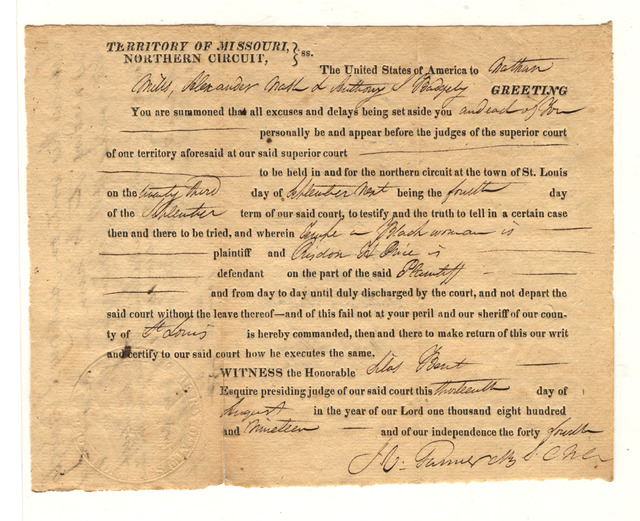 TERRITORY OF MISSOURI,
NORTHERN CIRCUIT, } ss.
The United States of America to Nathan
Mills, Alexander Nash & Anthony S Badgely GREETING
You are summoned that all excuses and delays being set aside you and each of You
personally be and appear before the judges of the superior court
of our territory aforesaid at our said superior court
to be held in and for the northern circuit at the town of St. Louis
on the twenty third day of September next being the fourth day
of the September term of our said court, to testify and the truth to tell in a certain case
then and there to be tried, and wherein a Black woman is
plaintiff and Risdon H Price is
defendant on the part of the said Plaintiff
and from day to day until duly discharged by the court, and not depart the
said court without the leave thereof—and of this fail not at your peril and our sheriff of our coun-
ty of St Louis is hereby commanded, then and there to make return of this our writ
and certify to our said court how he executes the same.
WITNESS the Honorable Silas Bent
Esquire presiding judge of our said court this thirteenth day of
August in the year of our Lord one thousand eight hundred
and Nineteen and of our independence the forty fourth